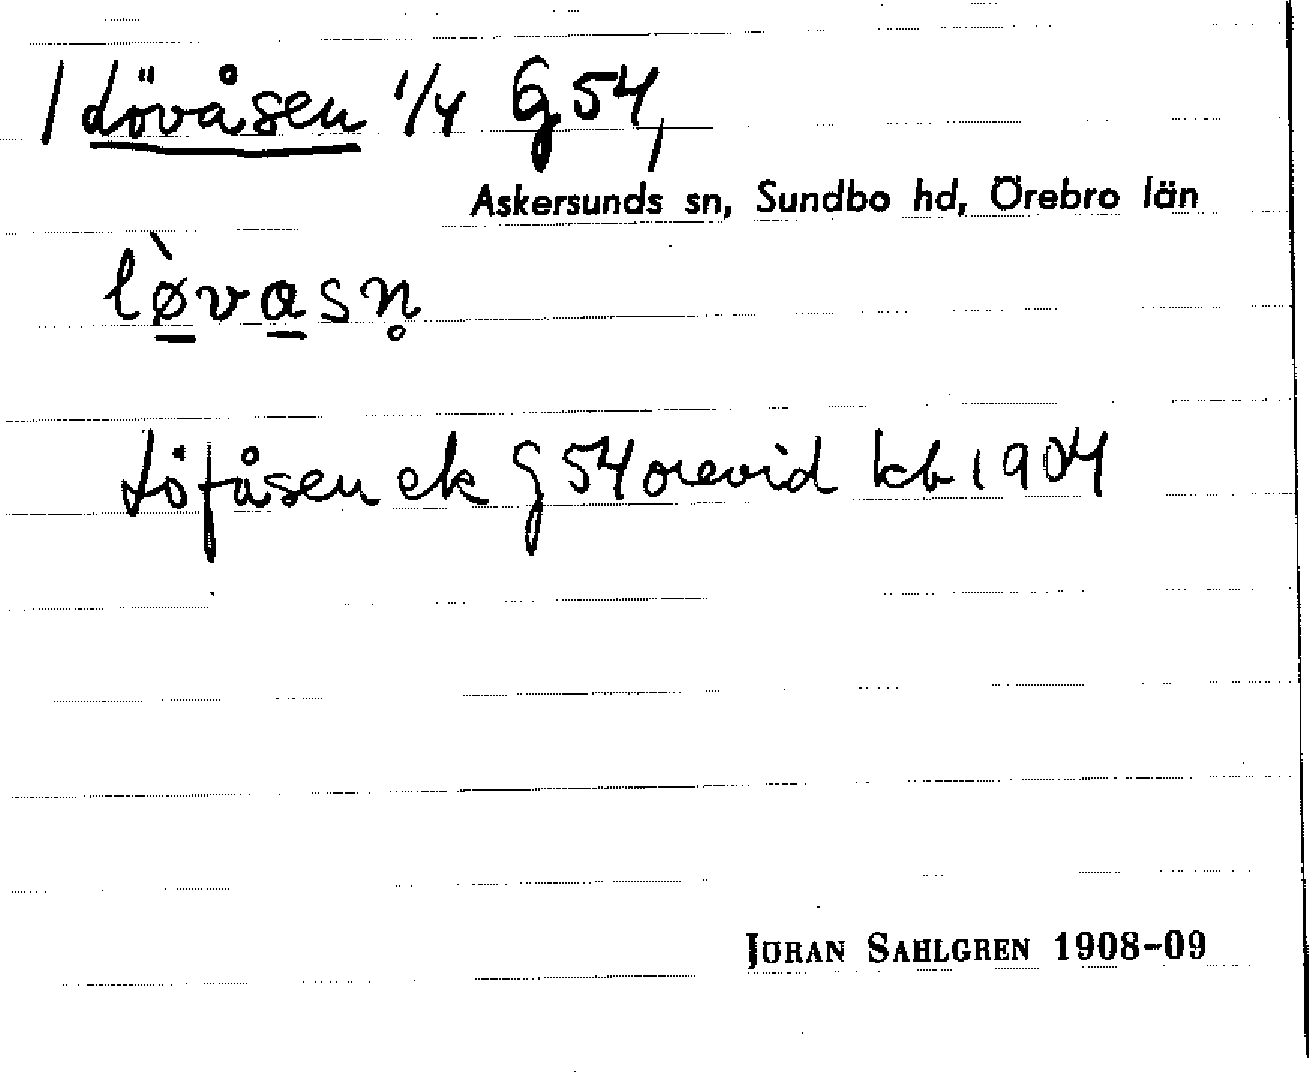 / Lövåsen 1/4 G 54,
Askersunds sn, Sundbo hd, Örebro län
lø̲̀va̲sn̥
Löfåsen ek G 54 orevid kb 1904
JÖRAN SAHLGREN 1908-09